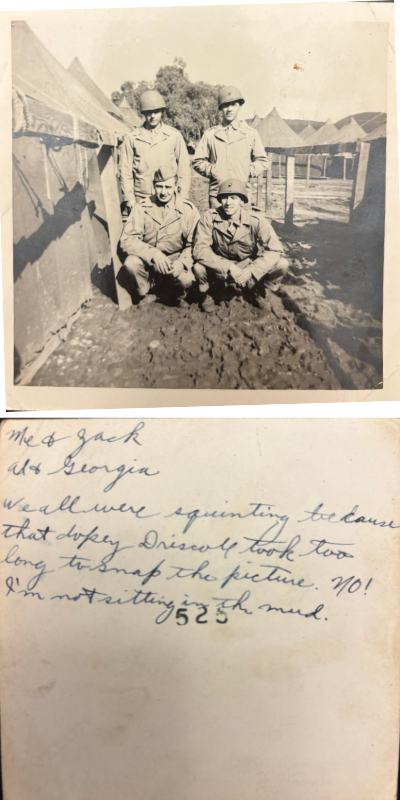 Me & Zack
Al & Georgia
We all were squinting because
that dopey Driscoll took too
long to snap the picture. NO!
I'm not sitting in the mud.
525